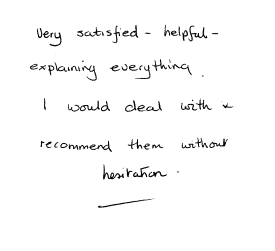 Very satisfied - helpful -
explaining everything.
I would deal with &
recommend them without
hesitation.